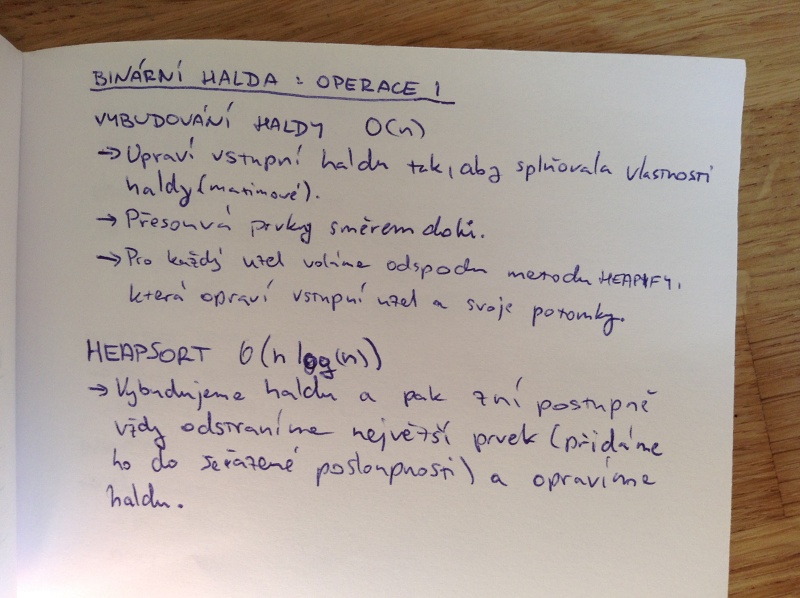 BINÁRNÍ HALDA : OPERACE 1
VYBUDOVÁNÍ HALDY O(n)
→ Upraví vstupní haldu tak, aby splňovala vlastnosti
haldy (maximové).
→ Přesouvá prvky směrem dolů.
→ Pro každý uzel voláme odspodu metodu HEAPIFY,
která opraví vstupní uzel a svoje potomky.
HEAPSORT O(n log(n))
→ Vybudujeme haldu a pak z ní postupně
vždy odstraníme největší prvek (přidáme
ho do seřazené posloupnosti) a opravíme
haldu.